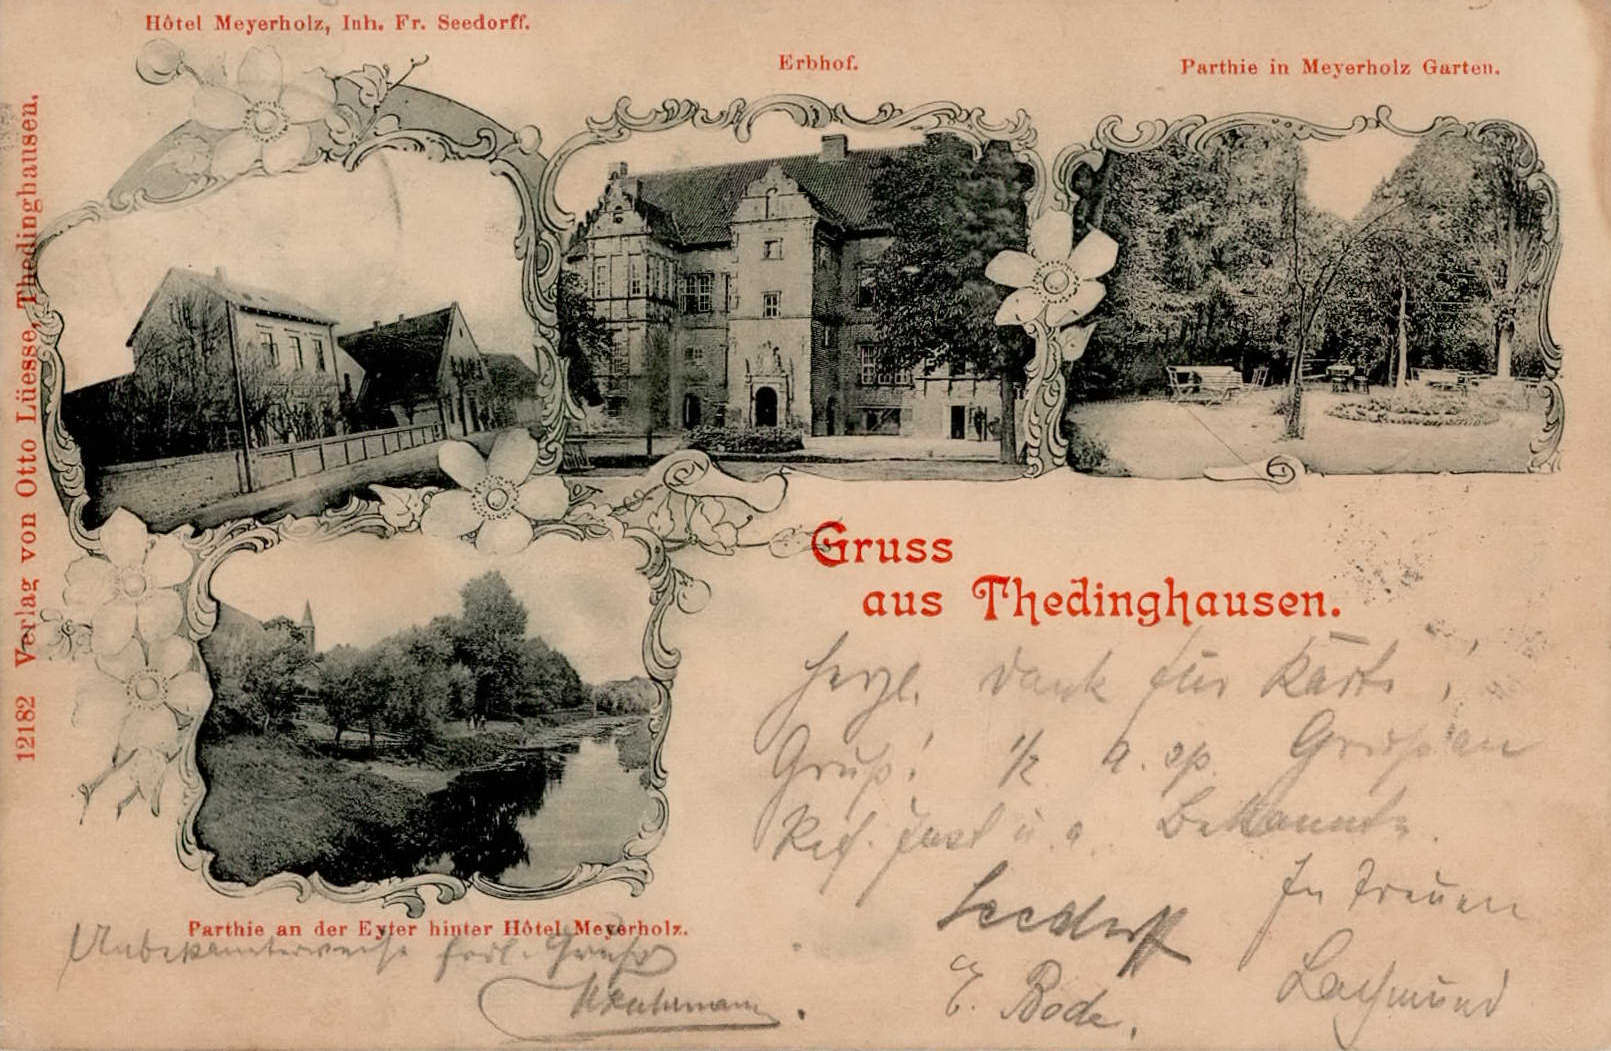 Hôtel Meyerholz, Inh. Fr. Seedorff.
Erbhof.
Parthie in Meyerholz Garten.
12182 Verlag von Otto Lüesse, Thedinghausen.
Gruss
aus Thedinghausen.
herzl. Dank für Karte!
Gruß! 1/2 Gruß an
u. a. Bekannte.
In Treuen
Seedorff
Lachmund
E. Bode.
Parthie an der Eyter hinter Hôtel Meyerholz.
Unbekannterweise